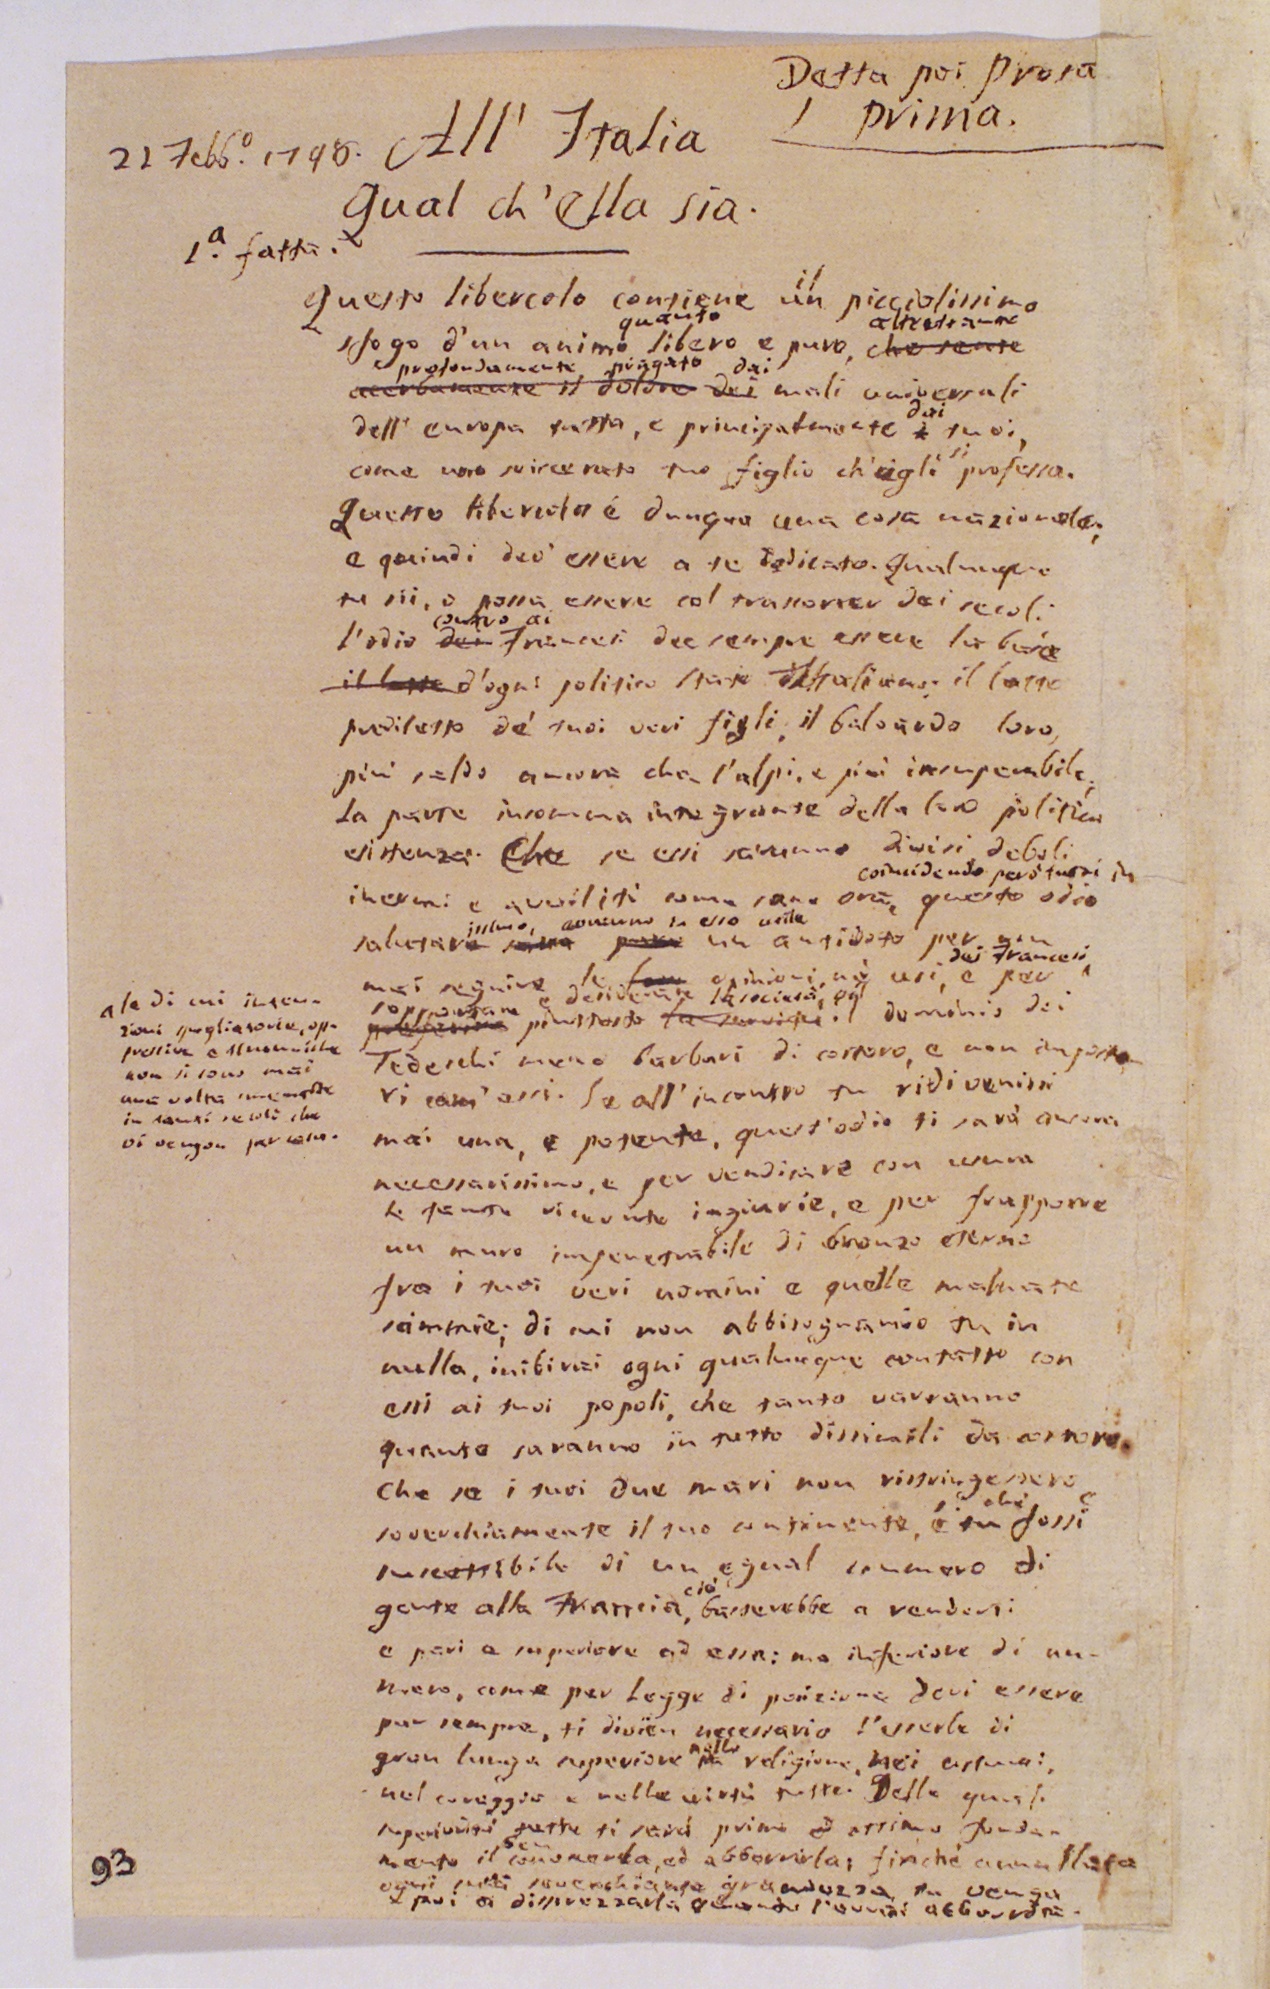 Detta poi Prosa
prima.
22 Febb.º 1798.
All' Italia
Qual ch'Ella sia.
1.ª fatta.
Questo libercolo contiene il un picciolissimo
sfogo d'un animo quanto libero e puro, altrettante che sente
profondamente piagato dai acerbamente il dolore dei mali universali
dell' europa tutta, e principalmente dai i tuoi,
come uno sviscerato tuo figlio ch'egli si professa.
Questo libercolo é dunque una cosa nazionale;
e quindi dev' essere a te dedicato. Qualunque
tu sii, o possa essere col trascorrer dei secoli:
l'odio contro ai dei Francesi dee sempre essere la base
il lutto d'ogni politico stato Italiano; il
prediletto de' tuoi veri figli, il baloardo loro,
piú saldo ancora che l'alpi, e piú insuperabile;
La parte insomma integrante della loro politica
esistenza. Che se essi saranno divisi deboli
inermi e avviliti come sono ora, coincidendo però tutti in questo odio
salutare un antidoto per non
mai seguire le opinioni, nè usi, dei Francesi, e per
piuttosto il dominio dei
Tedeschi meno barbari di costoro, e non impostori
com' essi. Se all'incontro tu ridivenissi
mai una, e potente, quest'odio ti sará ancora
necessarissimo, e per vendicare con usura
le tante ricevute ingiurie, e per frapporre
un muro impenetrabile di bronzo eterno
fra i tuoi veri uomini e quelle malnate
scimmie; di cui non abbisognando tu in
nulla, inibirai ogni qualunque contatto con
essi ai tuoi popoli, che tanto varranno
quanto saranno in tutto dissimili da costoro.
Che se i tuoi due mari non ristringessero
soverchiamente il tuo continente, é che tu fossi
suscettibile di un egual numero di
gente alla Francia, ció basterebbe a renderti
e pari e superiore ad essa: ma inferiore di nu-
mero, come per Legge di posizione devi essere
pur sempre, ti divien necessario l'esserle di
gran lunga superiore nella religione, nei costumi,
nel coraggio e nelle virtù tutte. Delle quali
superiorità tutte ti sarà primo ed ottimo fonda-
mento il ben conoscerla, ed abborrirla; finché annullata
ogni soverchiante grandezza, tu venga
poi a disprezzarla quanto l'avrai abborrita.
a le di cui inven-
zioni spogliatorie, op-
pressive e tiranniche
non si sono mai
una volta smentite
in tanti secoli che
vi vengon per casa.
93